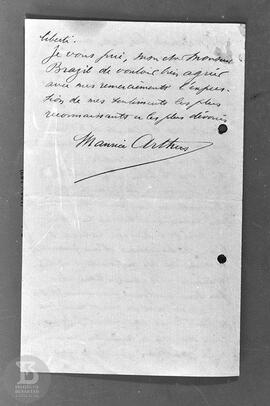 liberté.
Je vous prie, mon cher Monsieur
Brazil de vouloir bien agréer
avec mes remerciements l'expres-
sion de mes sentiments les plus
reconnaissants et les plus dévoués
Maurice Arthus